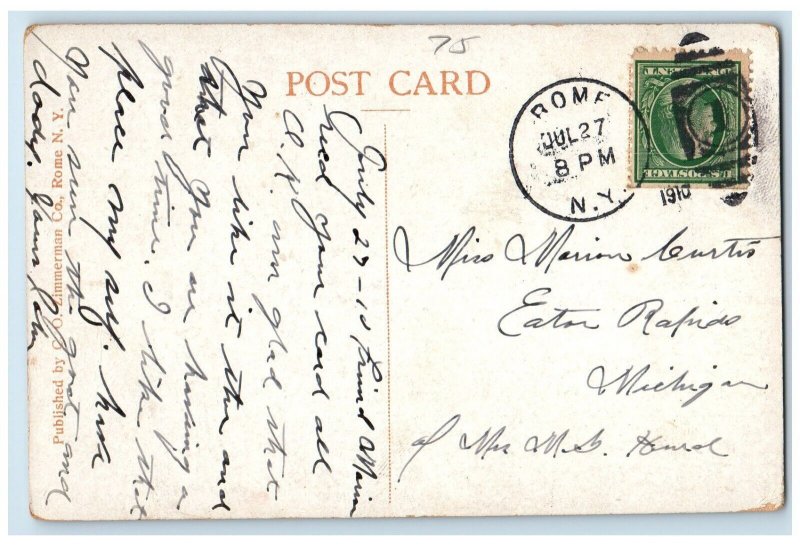 75
POST CARD
ROME
JUL 27
8 PM
N.Y.
1910
U.S. POSTAGE
July 27-10 Friend Marion
Recd your card all
O.K. am glad that
You like it there and
that You are having a
good time. I like that
place my self. have
You seen the great and
dady.
Miss Marion Curtis
Eaton Rapids
Michigan
Mrs M.S. Hurd
Published by C. O. Zimmerman Co., Rome N. Y.